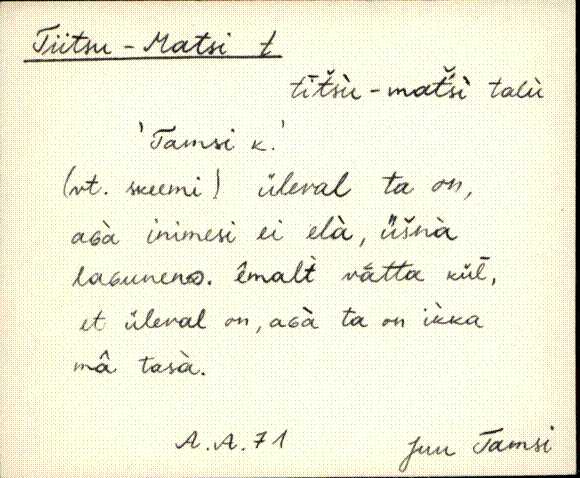 Tiitsu - Matsi t
tīt̆šù - mat̆šì talù
'Tamsi k.'
(vt. skeemi) üleval ta on,
aGà inimesi ei elà, üšnà
laGunenD. êmalt̀ vātta kül̄,
et üleval on, aGà ta on ìkka
mâ tasà.
A.A.71
Juu Tamsi